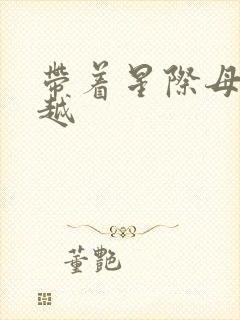 帶着星際母
越
董艷